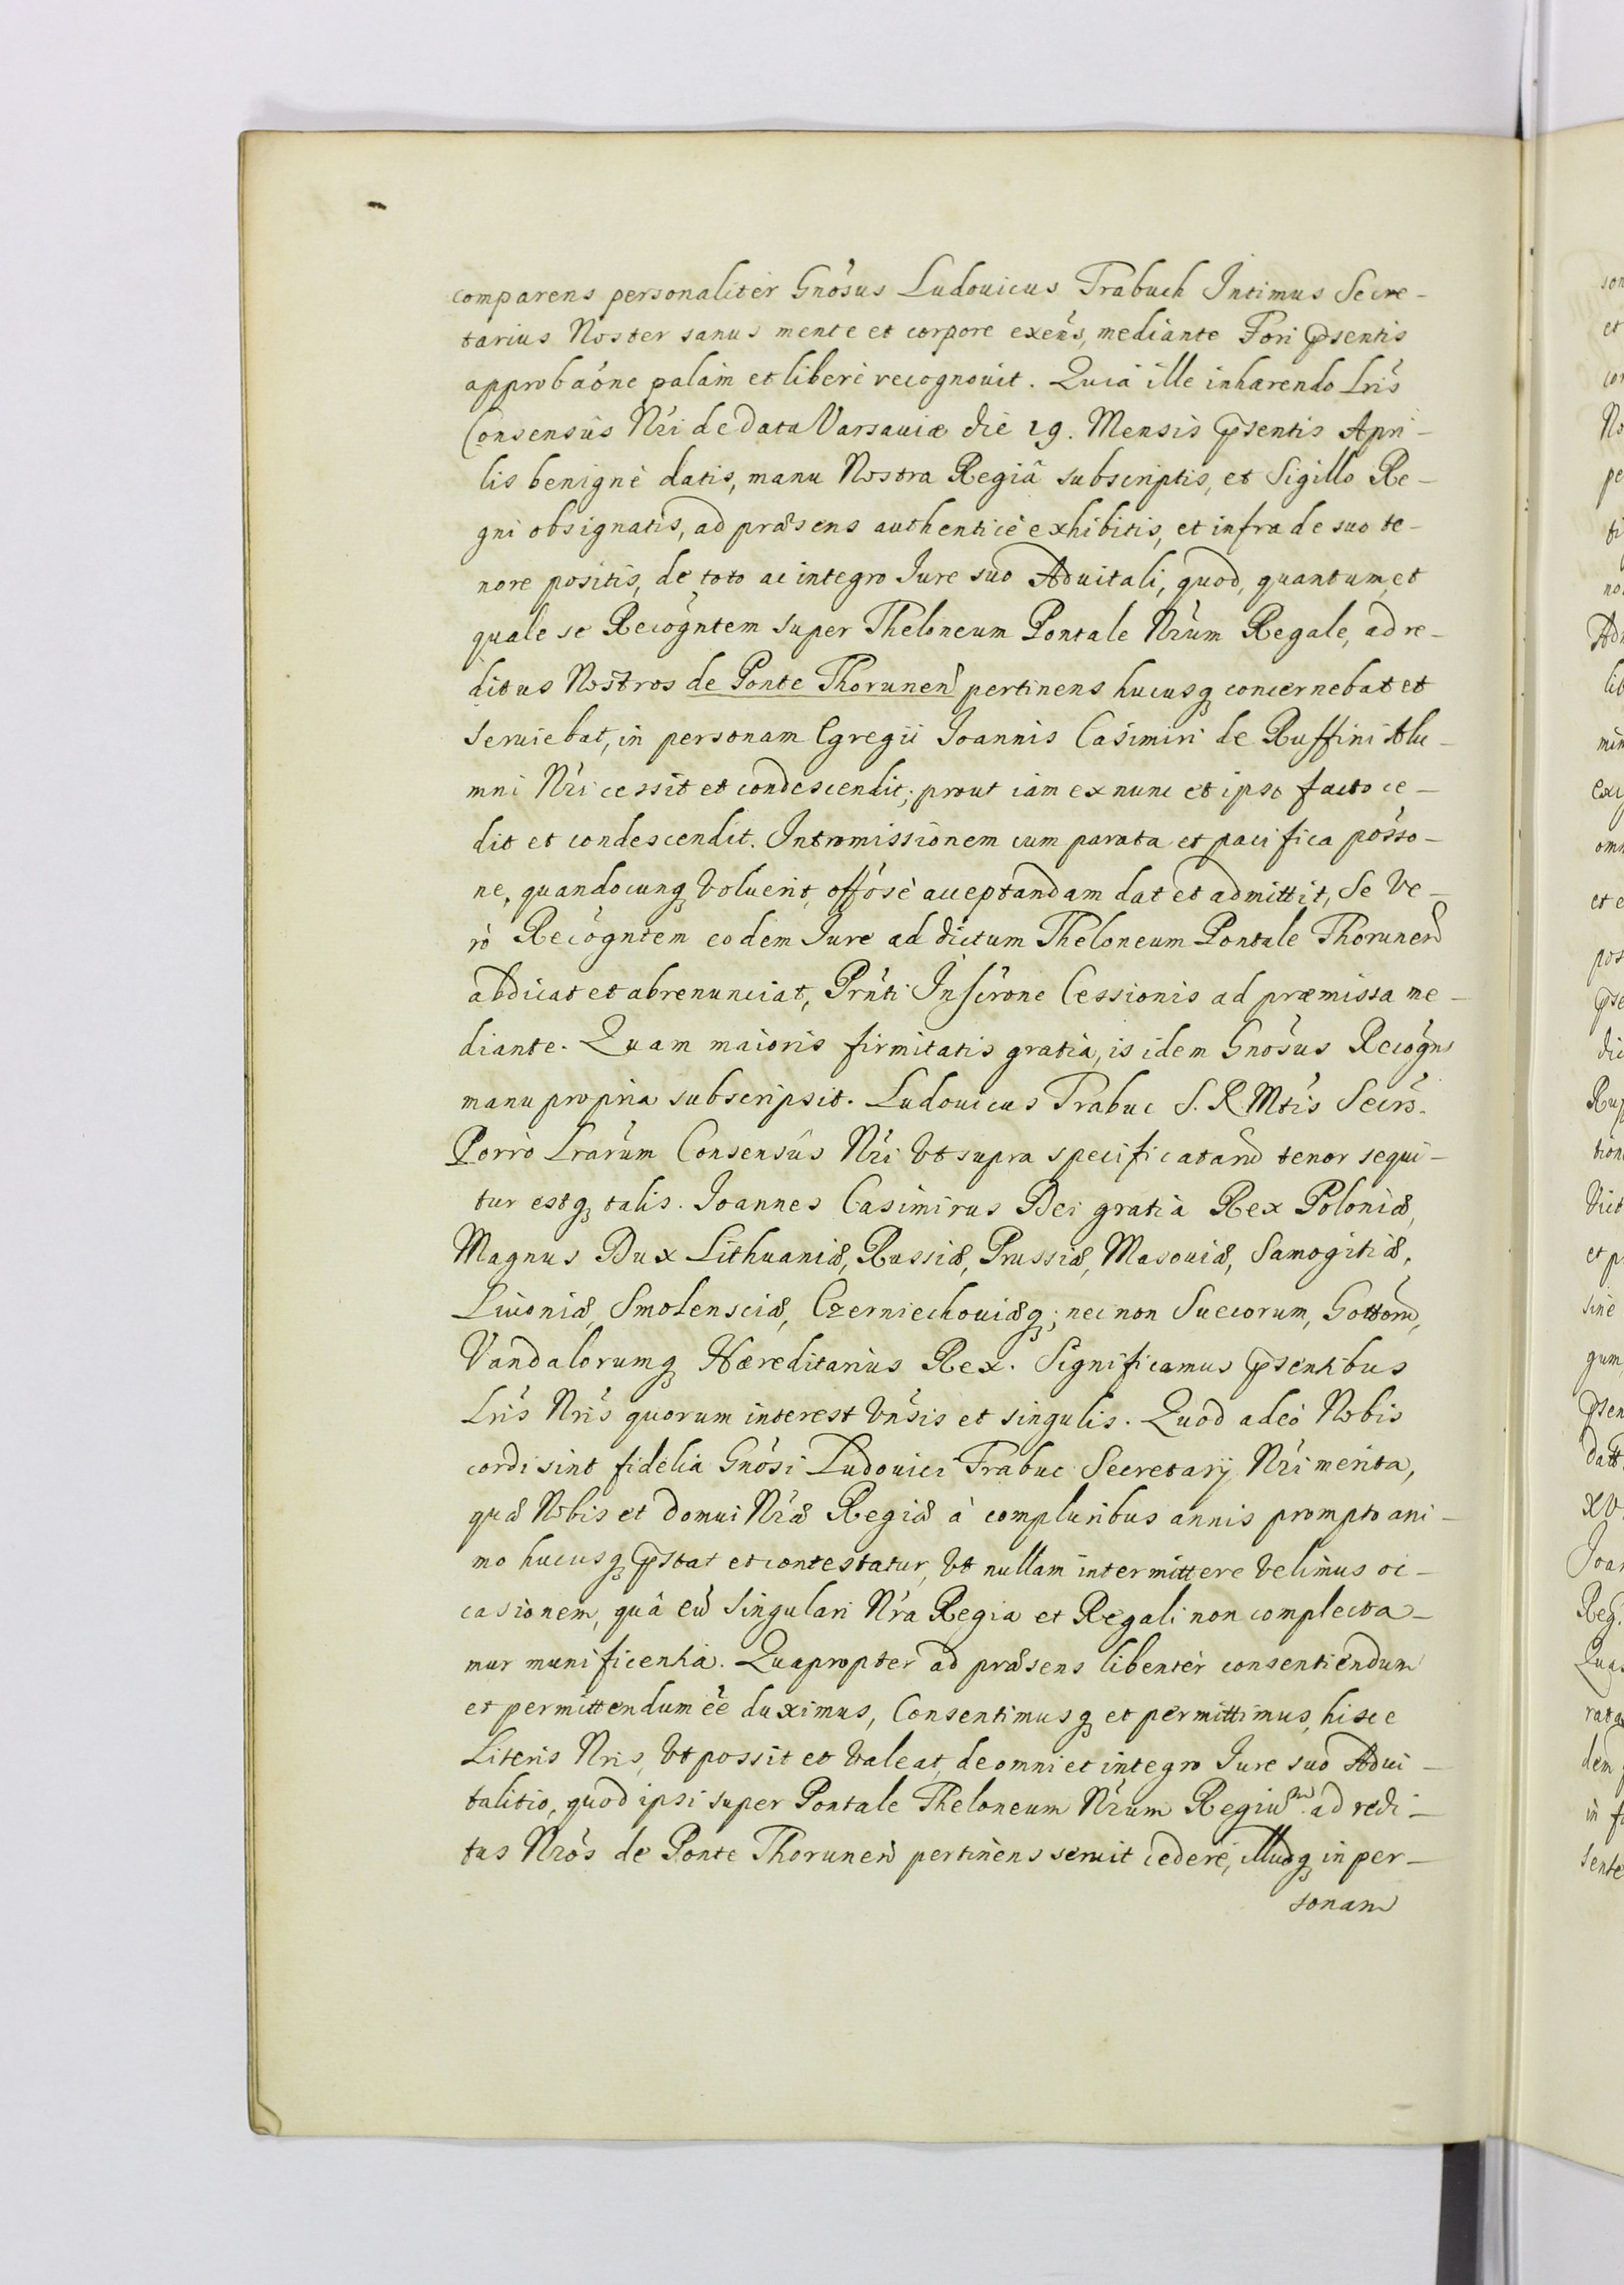 comparens personaliter Gnosus Ludouicus Trabuch Intimus Secre-
tarius Noster sanus mente et corpore exens, mediante Fori psentis
approbaone palam et liberè recognouit. Quia ille inhærendo Lris
Consensus Nri de data Varsauiæ die 19. Mensis psentis Apri-
lis benignè datis, manu Nostra Regiâ subscriptis, et Sigillo Re-
gni obsignatis, ad præsens authenticè exhibitis, et infra de suo te-
nore positis, de toto ac integro Iure suo Aduitali, quod, quantum, et
quale se Recogntem super Theloneum Pontale Nrum Regale, ad re-
ditus Nostros de Ponte Thorunen pertinens hucusq concernebat et
seruiebat, in personam Egregii Joannis Casimiri de Ruffini Alu-
mni Nri cessit et condescendit; prout iam ex nunc et ipso facto ce-
dit et condescendit. Intromissionem cum parata et pacifica posso-
ne, quandocunq voluerit, offosè acceptandam dat et admittit, Se ve-
rò Recogntem eodem Iure ad dictum Theloneum Pontale Thorunen
abdicat et abrenunciat, Prnti Inscrone Cessionis ad præmissa me-
diante. Quam maioris firmitatis gratia, is idem Gnosus Recogns
manu propria subscripsit. Ludouicus Trabuc S. R. Mtis Secrs.
Porrò Lrarum Consensûs Nri vt supra specificatarum tenor sequi-
tur estq talis. Joannes Casimirus Dei gratia Rex Poloniæ,
Magnus Dux Lithuaniæ, Russiæ, Prussiæ, Masouiæ, Samogitiæ,
Liuoniæ, Smolensciæ, Czerniechouiæq; nec non Suecorum, Gottorum,
Vandalorumq Hæreditarius Rex. Significamus psentibus
Lris Nris quorum interest vnsis et singulis. Quod adeò Nobis
cordi sint fidelia Gnosi Ludouici Trabuc Secretarij Nri merita,
quæ Nobis et domui Nræ Regiæ à compluribus annis prompto ani-
mo hucusq pstat et contestatur, vt nullam intermittere velimus oc-
casionem, quâ eum singulari Nra Regia et Regali non complecta-
mur munificentia. Quapropter ad præsens libenter consentiendum
et permittendum ee duximus, Consentimusq et permittimus, hisce
Literis Nris, vt possit et valeat, de omni et integro Iure suo Adui-
talitio, quod ipsi super Pontale Theloneum Nrum Regium ad redi-
tus Nros de Ponte Thorunen pertinens seruit cedere, illudq in per-
sonam